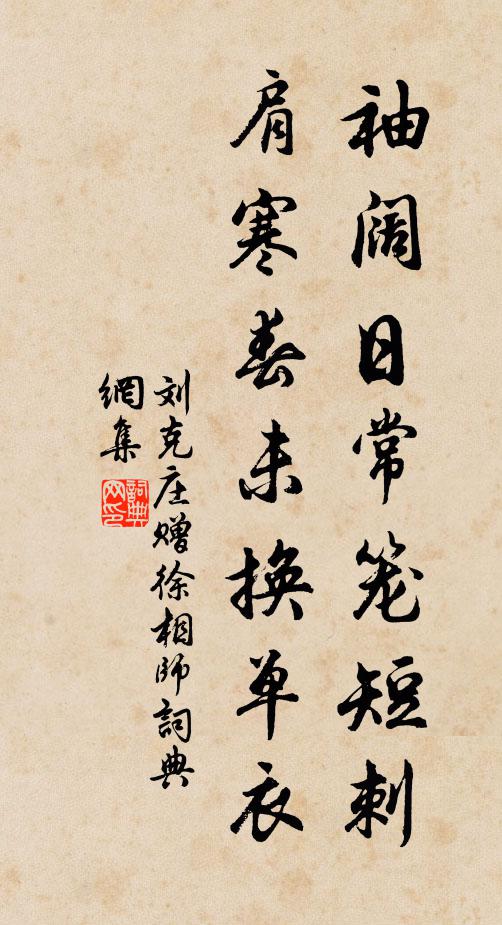 袖阔日常笼短刺
肩寒春未换单衣
刘克庄赠徐相师詞典
網集
詞典
网印